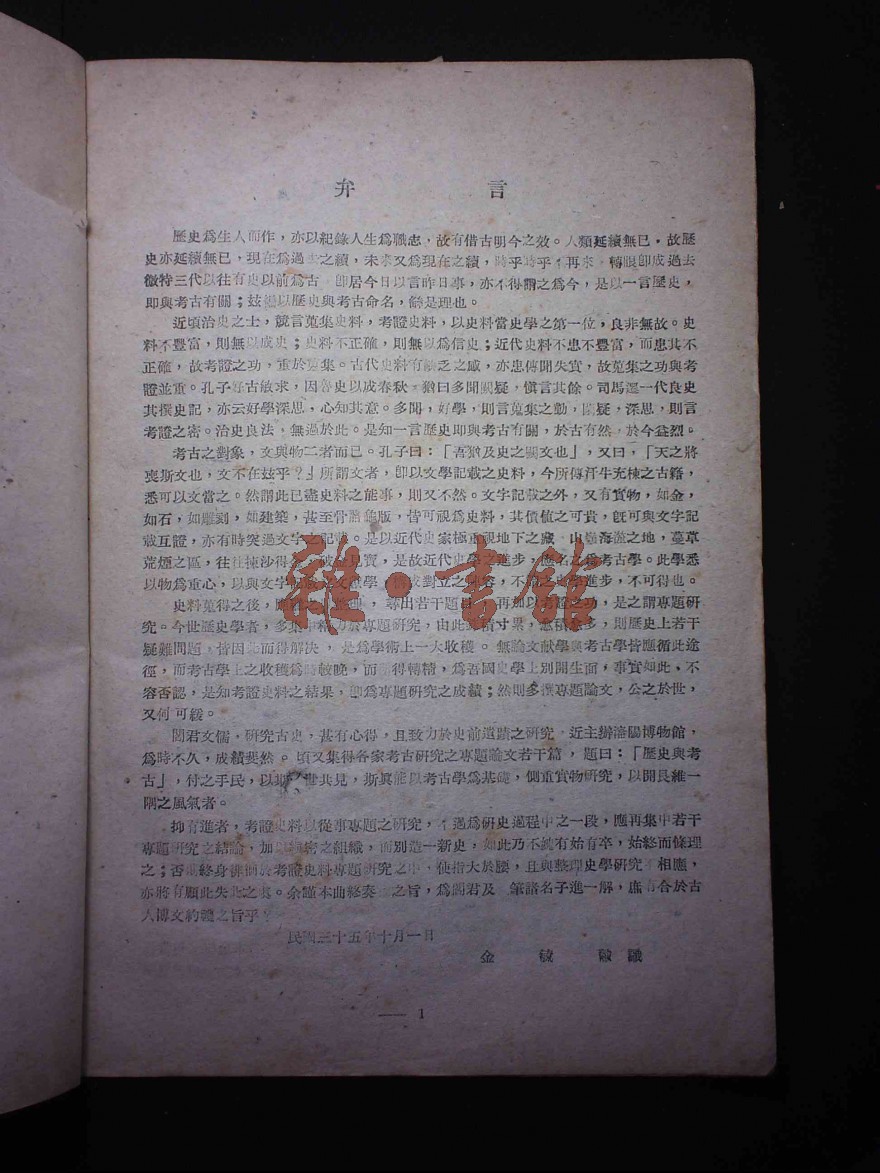 弁言
歷史爲生人而作，亦以紀錄人生爲職志，故有借古明今之效。人類延續無已，故歷
史亦延續無已，現在爲過去之續，未來又爲現在之續，時乎時乎不再來，轉眼卽成過去
微特三代以往有史以前爲古，卽居今日以言昨日事，亦不得謂之爲今，是以一言歷史，
卽與考古有關；茲編以歷史與考古命名，緣是理也。
近頃治史之士，競言蒐集史料，考證史料，以史料當史學之第一位，良非無故。史
料不豐富，則無以成史；史料不正確，則無以爲信史；近代史料不患不豐富，而患其不
正確，故考證之功，重於蒐集。古代史料有缺乏之感，亦患傳聞失實，故蒐集之功與考
證並重。孔子好古敏求，因魯史以成春秋，猶曰多聞闕疑，愼言其餘。司馬遷一代良史
其撰史記，亦云好學深思，心知其意。多聞，好學，則言蒐集之勤，闕疑，深思，則言
考證之密。治史良法，無過於此。是知一言歷史卽與考古有關，於古有然，於今益烈。
考古之對象，文與物二者而已。孔子曰：「吾猶及史之闕文也」，又曰，「天之將
喪斯文也，文不在茲乎？」所謂文者，卽以文學記載之史料，今所傳汗牛充棟之古籍，
悉可以文當之。然謂此已盡史料之能事，則又不然。文字記載之外，又有實物，如金，
如石，如雕刻，如建築，甚至骨甲龜版，皆可視爲史料，其價值之可貴，旣可與文字記
載互證，亦有時突過文字之記載。是以近代史家極重視地下之藏，山巓海澨之地，蔓草
荒煙之區，往往揀沙得金，破 見寶，是故近代史學之進步，應名之爲考古學。此學悉
以物爲重心，以與文字記載之文獻學，構成對立之陣容，不謂之史學進步，不可得也。
史料蒐得之後，應 整理，尋出若干題目，再加以考證之功，是之謂專題研
究。今世歷史學者，多集中精力於專題研究，由此 積寸累，愈積愈多，則歷史上若干
疑難問題，皆因此而得解決，是爲學術上一大收穫。無論文獻學與考古學皆應循此途
徑，而考古學上之收穫爲時較晚，而 得轉精，爲吾國史學上別開生面，事實如此，不
容否認，是知考證史料之結果，卽爲專題研究之成績；然則多撰專題論文，公之於世，
又何可緩。
閻君文儒，研究古史，甚有心得，且致力於史前遺蹟之研究，近主辦瀋陽博物館，
爲時不久，成績斐然。頃又集得各家考古研究之專題論文若干篇，題曰：「歷史與考
古」，付之手民，以期 世共見，斯眞能以考古學爲基礎，側重實物研究，以開艮維一
隅之風氣者。
抑有進者，考證史料以從事專題之研究，不過爲研史過程中之一段，應再集中若干
專題研究之結論，加以縝密之組織，而別造一新史，如此乃不愧有始有卒，始終而條理
之；否則終身徘徊於考證史料專題研究之中，使指大於腰，且與整理史學研究不相應，
亦將有顧此失彼之 。余謹本曲終奏 之旨，爲閻君及 筆諸名子進一解，庶有合於古
人博文約禮之旨乎？
民國三十五年十月一日
金毓黻識
—— 1
雜·書館